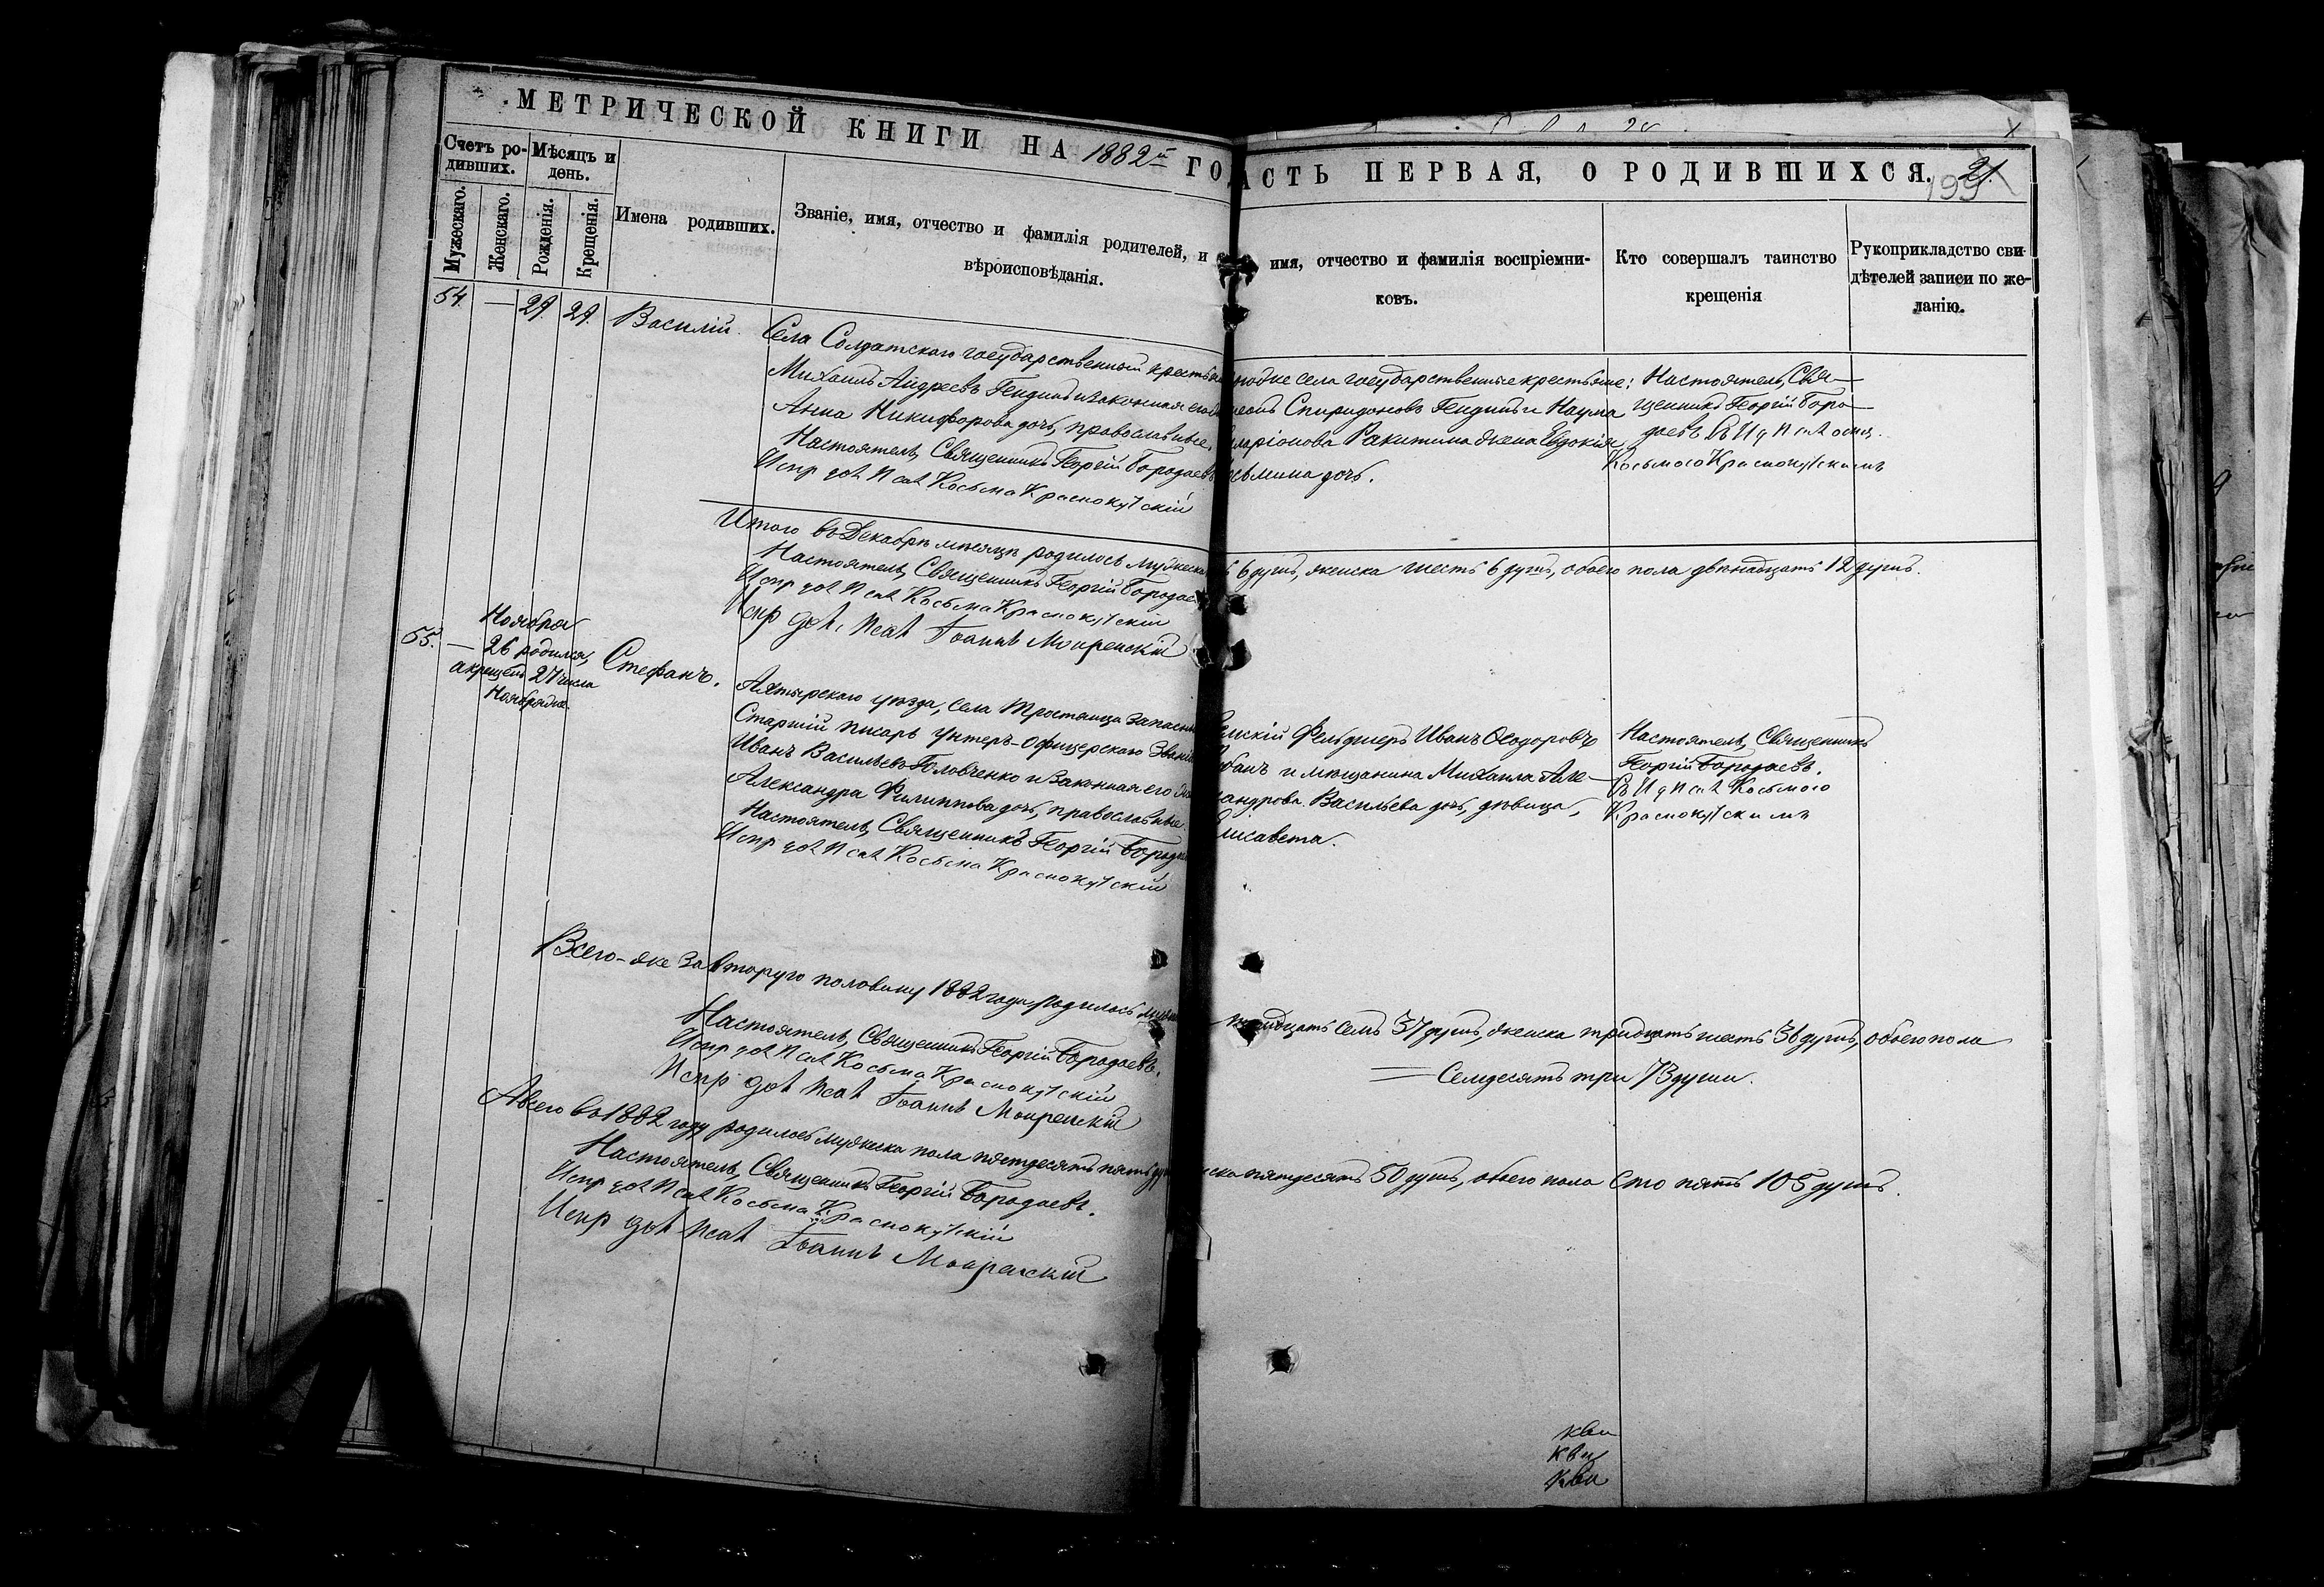 МЕТРИЧЕСКОЙ КНИГИ НА 1882й ГО
Счетъ ро-
дившихъ.
Мѣсяцъ и
день.
Мужескаго.
Женскаго.
Рожденія.
Крещенія.
Имена родившихъ.
Званіе, имя, отчество и фамилія родителей, и
вѣроисповѣданія.
54. — 29. 29. Василій.
Села Солдатскаго государственный крестья
Михаилъ Андреевъ Гендинъ и законная его
Анна Никифорова дочь, православные.
Настоятель, Священникъ Георгій Бородаевъ
Испр дол Псал Косьма Краснокутскій
Итого въ Декабрѣ мѣсяцѣ родилось мужеска
Настоятель, Священникъ Георгій Бородае
Испр дол Псал Косьма Краснокутскій
Испр дол, Псал Іоаннъ Мокренскій
55. — Ноября
26 родился,
а крещенъ 27 числа
Ноября же.
Стефанъ.
Ахтырскаго уѣзда, села Тростянца запасный
Старшій писарь унтеръ-офицерскаго званія
Иванъ Васильевъ Головченко и законная его
Александра Филиппова дочь, православные.
Настоятель, Священникъ Георгій Бородае
Испр дол Псал Косьма Краснокутскій
Всего-же за вторую половину 1882 года родилось муже
Настоятель, Священникъ Георгій Бородаевъ.
Испр дол Псал Косьма Краснокутскій
Испр дол Псал Іоаннъ Мокренскій
А всего въ 1882 году родилось мужеска пола пятдесятъ пять ду
Настоятель, Священникъ Георгій Бородаевъ.
Испр дол Псал Косьма Краснокутскій
Испр дол Псал Іоаннъ Мокренскій
АСТЬ ПЕРВАЯ, О РОДИВШИХСЯ. 21.
199
имя, отчество и фамилія воспріемни-
ковъ.
Кто совершалъ таинство
крещенія
Рукоприкладство сви-
дѣтелей записи по же-
ланію.
того же села государственные крестьяне:
Спиридоновъ Гендинъ и Наума
Иларіонова Ракитина жена Евдокія
дочь.
Настоятель, Свя-
щенникъ Георгій Боро-
даевъ съ И д Псаломщ.
Косьмою Краснокутскимъ
6 душъ, женска шесть 6 душъ, обоего пола двѣнадцать 12 душъ.
Земскій Фельдшеръ Иванъ Ѳеодоровъ
и мѣщанина Михаила Але-
ксандрова Васильева дочь, дѣвица,
Елисавета.
Настоятель, Священникъ
Георгій Бородаевъ.
Съ И д Псал Косьмою
Краснокутскимъ
тридцать семь 37 душъ, женска тридцать шесть 36 душъ, обоего пола
— Семдесятъ три 73 души.
ска пятдесятъ 50 душъ, обоего пола Сто пять 105 душъ.